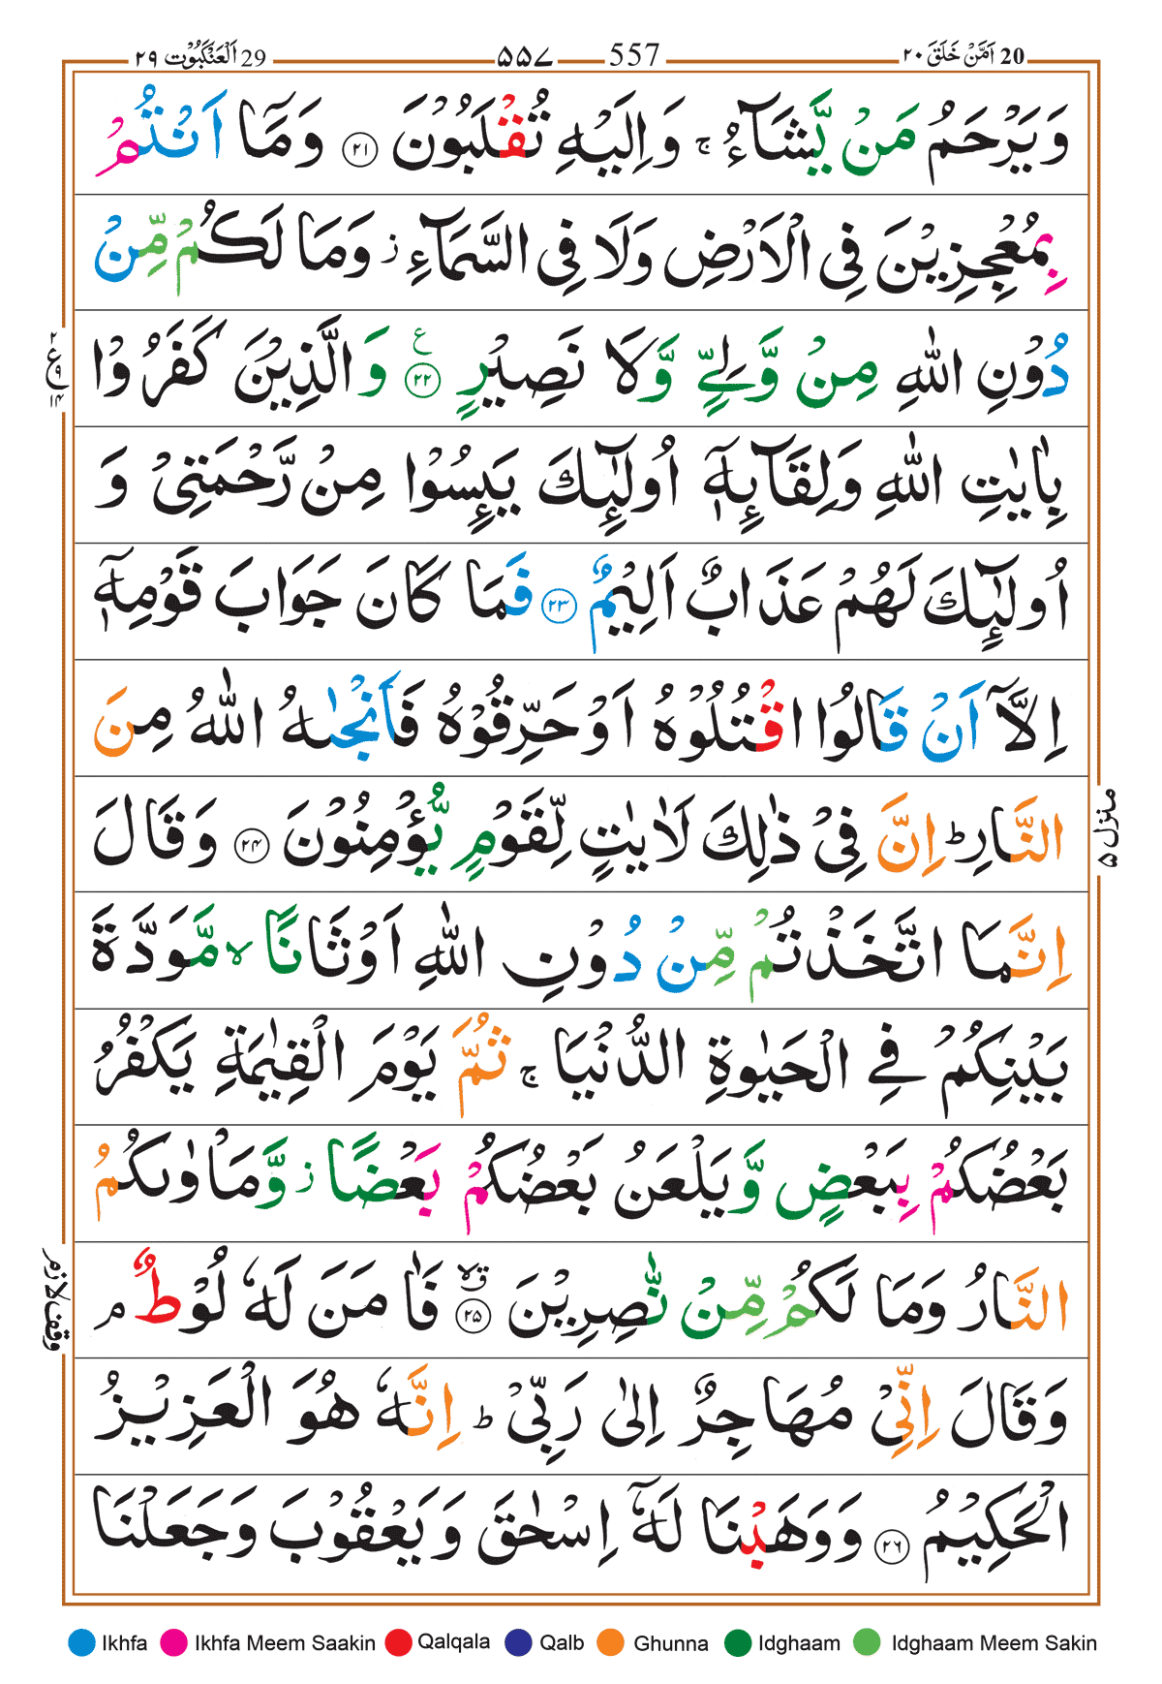 20 اَمَّنْ خَلَقَ ٢٠ 557 ٥٥٧ 29 اَلْعَنْكَبُوْت ٢٩
وَيَرْحَمُ مَنْ يَّشَآءُ ۚ وَاِلَيْهِ تُقْلَبُوْنَ ٢١ وَمَآ اَنْتُمْ
بِمُعْجِزِيْنَ فِى الْاَرْضِ وَلَا فِى السَّمَآءِ ز وَمَا لَكُمْ مِّنْ
دُوْنِ اللّٰهِ مِنْ وَّلِيٍّ وَّلَا نَصِيْرٍ ع ٢٢ وَالَّذِيْنَ كَفَرُوْا
بِاٰيٰتِ اللّٰهِ وَلِقَآئِهٖٓ اُولٰٓئِكَ يَئِسُوْا مِنْ رَّحْمَتِىْ وَ
اُولٰٓئِكَ لَهُمْ عَذَابٌ اَلِيْمٌ ٢٣ فَمَا كَانَ جَوَابَ قَوْمِهٖٓ
اِلَّآ اَنْ قَالُوا اقْتُلُوْهُ اَوْ حَرِّقُوْهُ فَاَنْجٰىهُ اللّٰهُ مِنَ
النَّارِ ؕ اِنَّ فِىْ ذٰلِكَ لَاٰيٰتٍ لِّقَوْمٍ يُّؤْمِنُوْنَ ٢٤ وَقَالَ
اِنَّمَا اتَّخَذْتُمْ مِّنْ دُوْنِ اللّٰهِ اَوْثَانًا ۙ مَّوَدَّةَ
بَيْنِكُمْ فِى الْحَيٰوةِ الدُّنْيَا ۚ ثُمَّ يَوْمَ الْقِيٰمَةِ يَكْفُرُ
بَعْضُكُمْ بِبَعْضٍ وَّيَلْعَنُ بَعْضُكُمْ بَعْضًا ز وَّمَاْوٰىكُمُ
النَّارُ وَمَا لَكُمْ مِّنْ نّٰصِرِيْنَ ٢٥ فَاٰمَنَ لَهٗ لُوْطٌ م
وَقَالَ اِنِّىْ مُهَاجِرٌ اِلٰى رَبِّىْ ؕ اِنَّهٗ هُوَ الْعَزِيْزُ
الْحَكِيْمُ ٢٦ وَوَهَبْنَا لَهٗٓ اِسْحٰقَ وَيَعْقُوْبَ وَجَعَلْنَا
منزل ٥
وقف لازم
Ikhfa Ikhfa Meem Saakin Qalqala Qalb Ghunna Idghaam Idghaam Meem Sakin